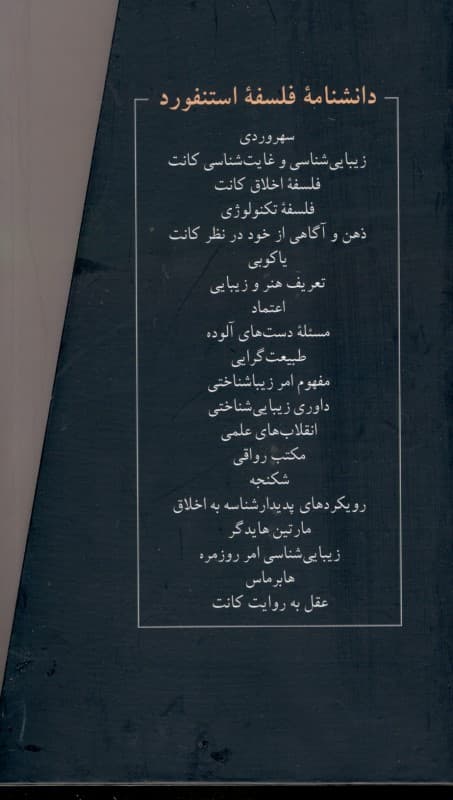 دانشنامهٔ فلسفهٔ استنفورد
سهروردی
زیبایی‌شناسی و غایت‌شناسی کانت
فلسفهٔ اخلاق کانت
فلسفهٔ تکنولوژی
ذهن و آگاهی از خود در نظر کانت
یاکوبی
تعریف هنر و زیبایی
اعتماد
مسئلهٔ دست‌های آلوده
طبیعت‌گرایی
مفهوم امر زیباشناختی
داوری زیبایی‌شناختی
انقلاب‌های علمی
مکتب رواقی
شکنجه
رویکردهای پدیدارشناسه به اخلاق
مارتین هایدگر
زیبایی‌شناسی امر روزمره
هابرماس
عقل به روایت کانت